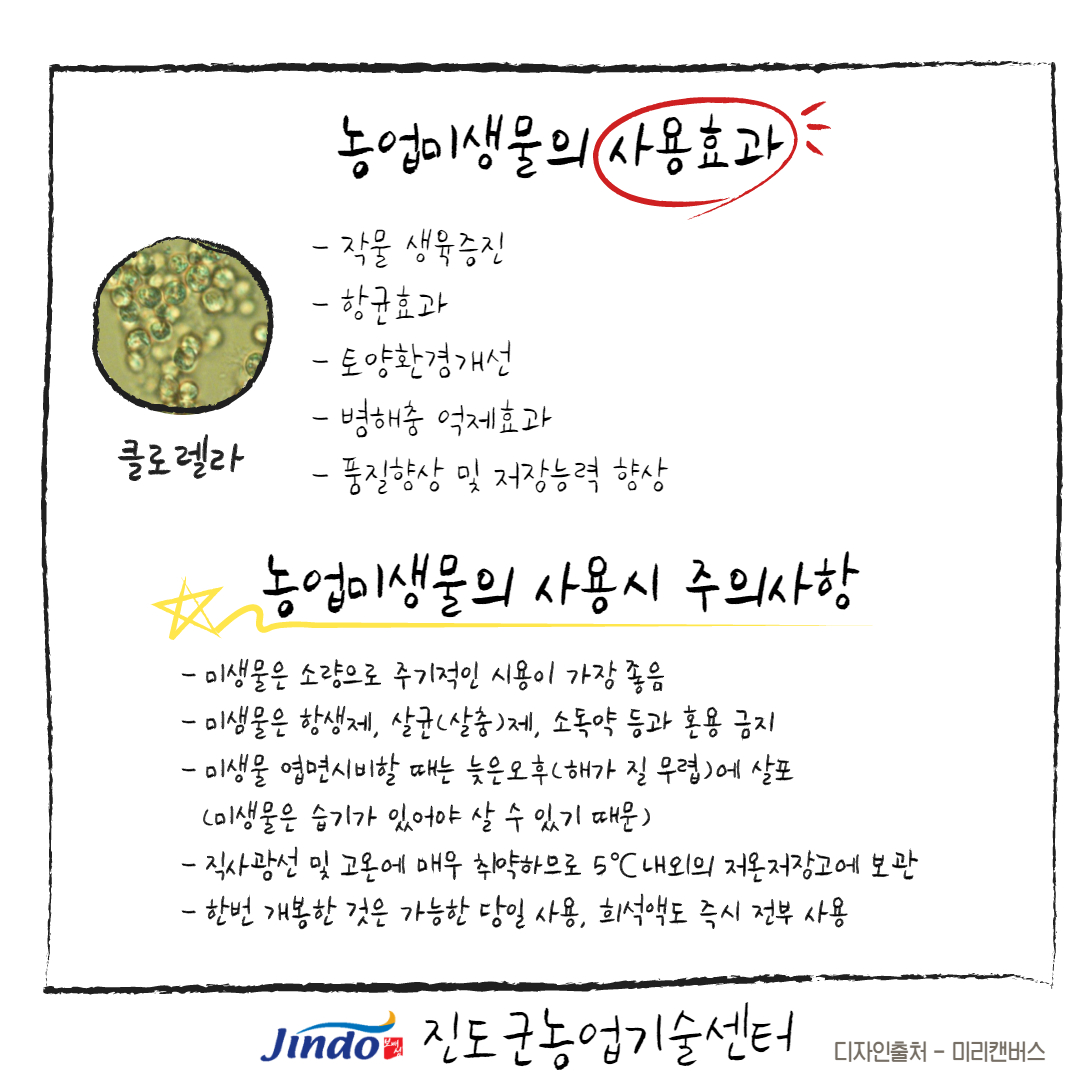 농업미생물의 사용효과
- 작물 생육증진
- 항균효과
- 토양환경개선
- 병해충 억제효과
- 품질향상 및 저장능력 향상
클로렐라
농업미생물의 사용시 주의사항
- 미생물은 소량으로 주기적인 시용이 가장 좋음
- 미생물은 항생제, 살균(살충)제, 소독약 등과 혼용 금지
- 미생물 엽면시비할 때는 늦은오후(해가 질 무렵)에 살포
(미생물은 습기가 있어야 살 수 있기 때문)
- 직사광선 및 고온에 매우 취약하므로 5℃내외의 저온저장고에 보관
- 한번 개봉한 것은 가능한 당일 사용, 희석액도 즉시 전부 사용
Jindo 보배섬 진도군농업기술센터
디자인출처 - 미리캔버스